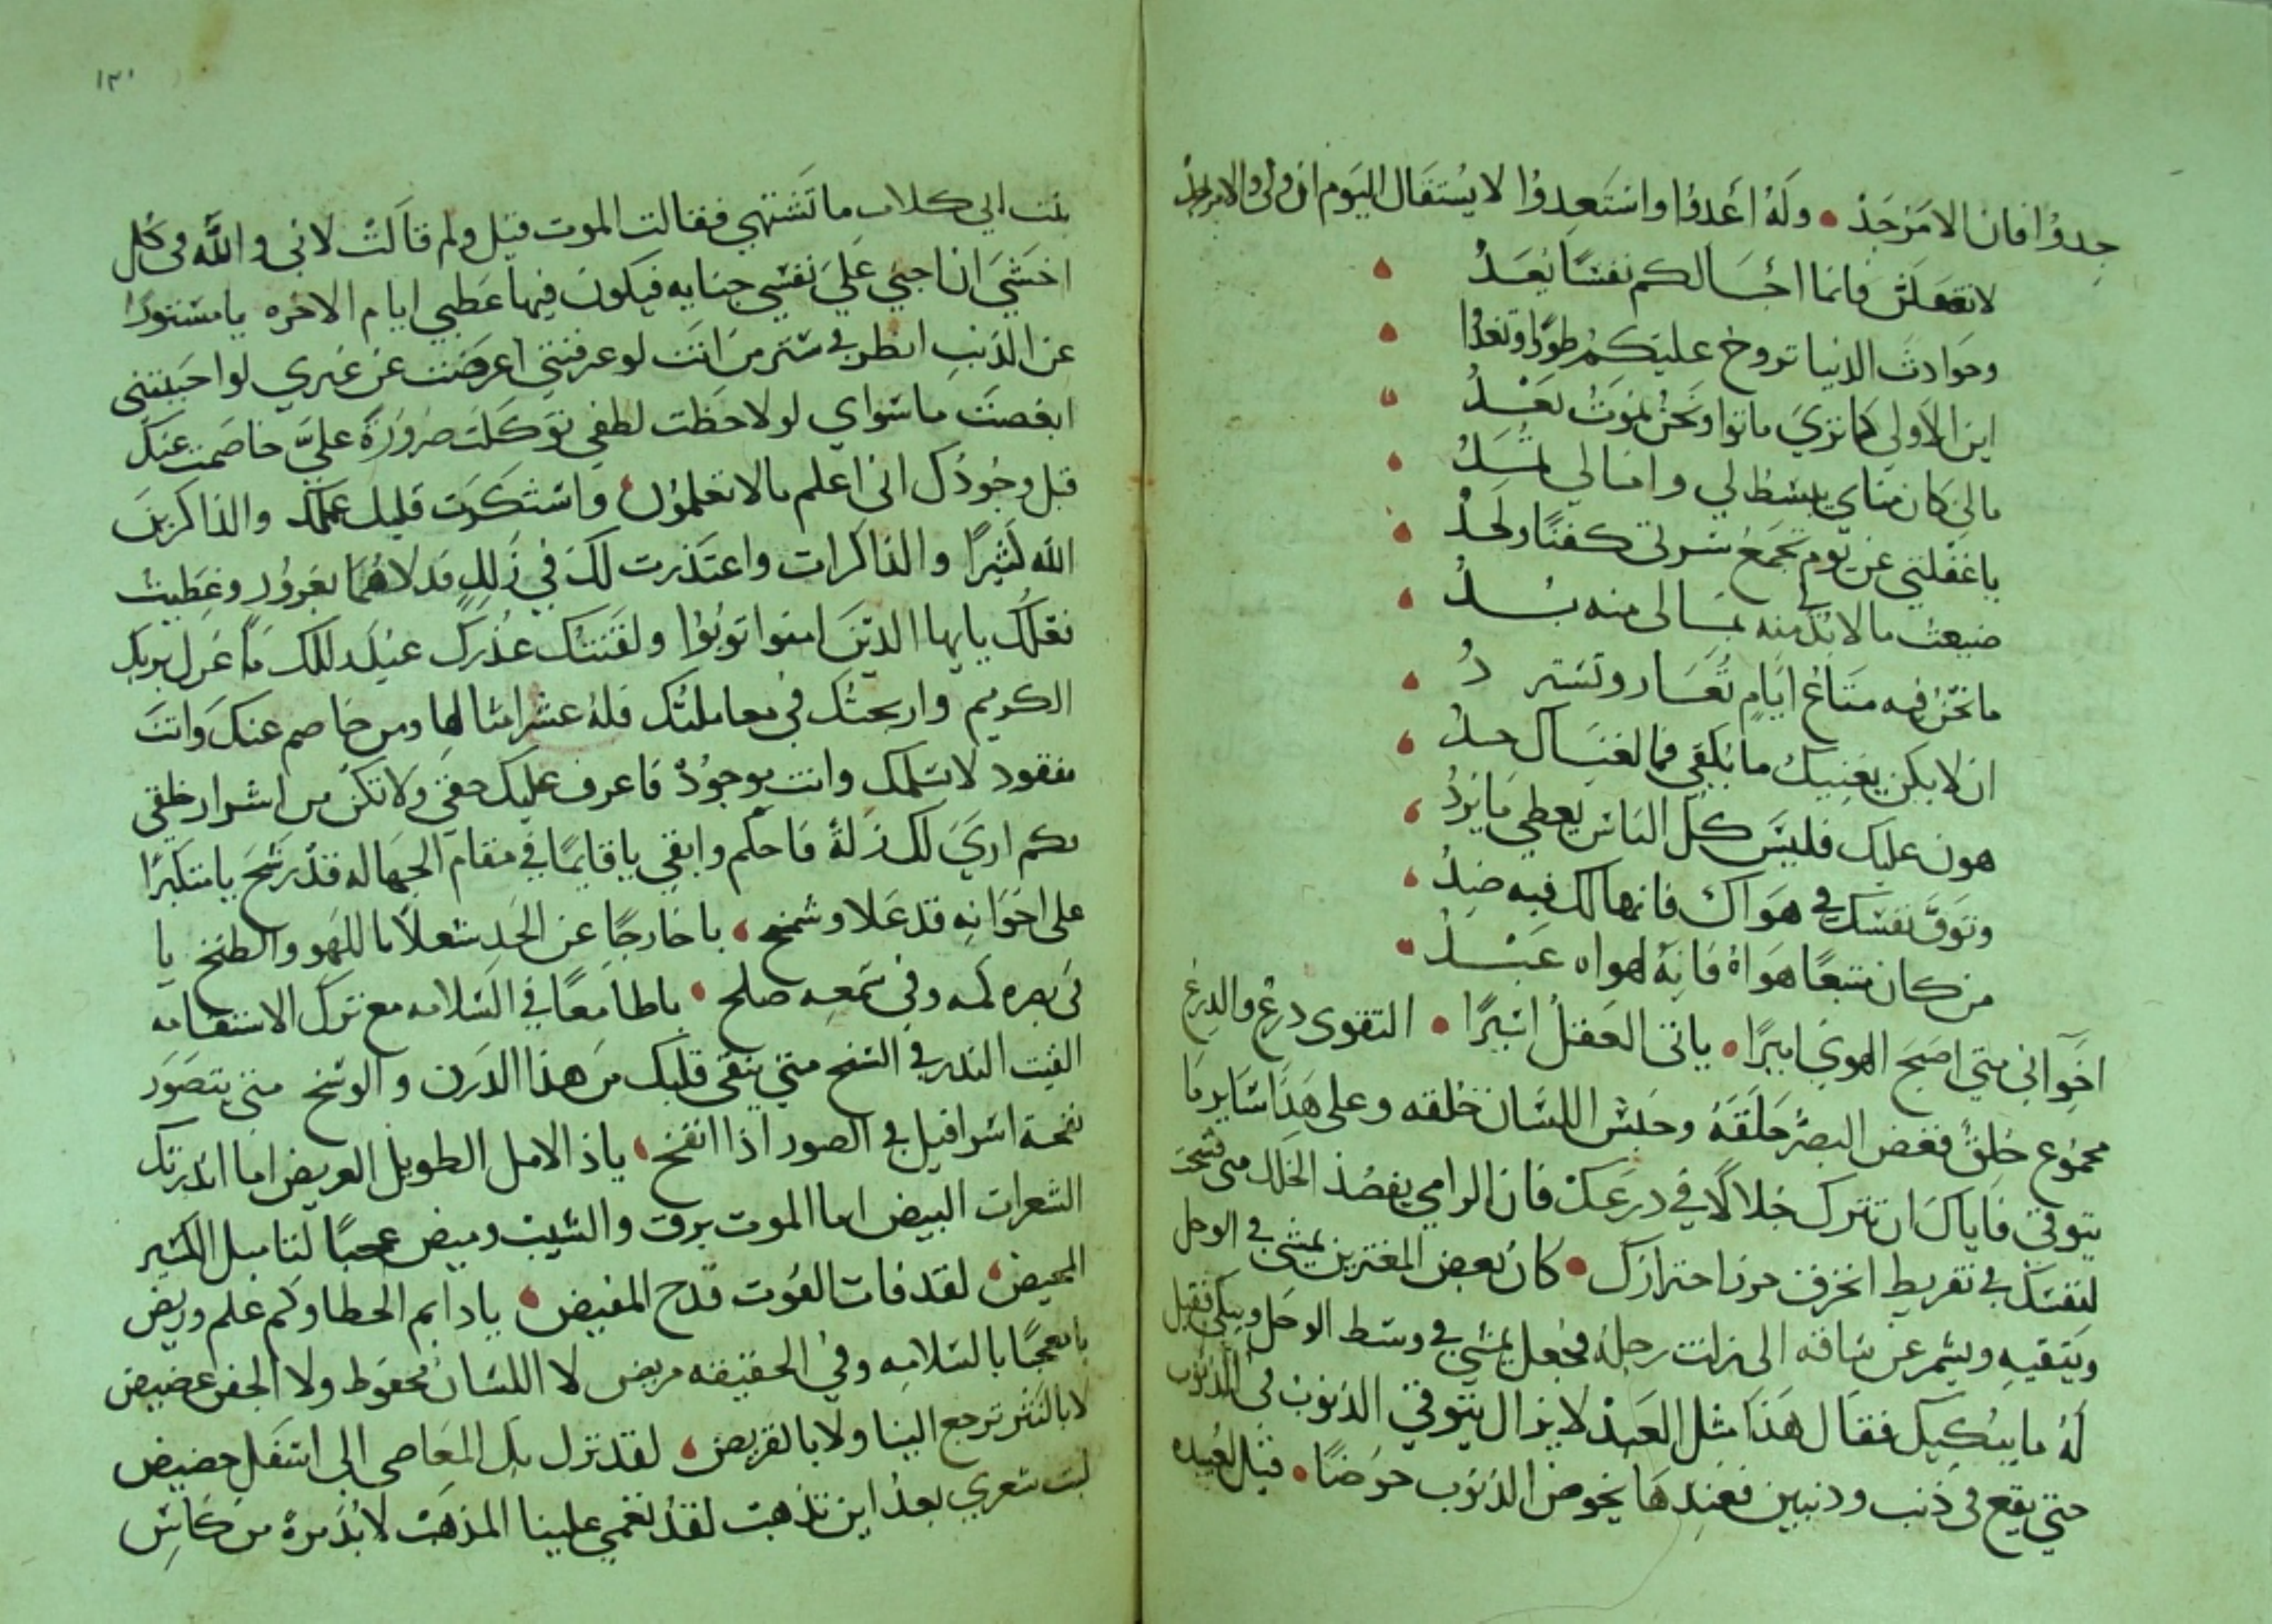 جدوا فان الامر جد • وله اغدوا واستعدوا لا يستقال اليوم ان ولى والامر جد
لا تغفلن فانما اجالكم نفسا يعد
وحوادث الدنيا تروح عليكم طورا وتغدوا
اين الاولي كما نري ماتوا ونحن نموت بعد
مالي كان مناي يبسط لي وامالي تمد
يا غفلتي عن يوم تجمع شرتي كفنا ولحد
ضيعت ما لا بد منه بما لى منه بد
ما نحن فيه متاع ايام تعار وتسترد
ان لا يكن يغنيك ما يكفي فما لغناك حد
هون عليك فليس كل الناس يعطي ما يود
وتوق نفسك في هواك فانها لك فيه ضد
من كان متبعا هواه فانه لهواه عبد
اخواني متي اصبح الهوي اميرا • ياتى العقل اسيرا • التقوى درع والدرع
مجموع خلق فغض البصر حلقه وحبس اللسان خلقه وعلى هذا ساير ما
يتوقي فاياك ان تترك خلالا في درعك فان الرامي يقصد الخلل متي فسحت
لنفسك في تفريط انخرق حرز احترازك • كان بعض المغترين يمشي في الوحل
ويتقيه ويشمر عن ساقه الى ان زلت رجله فجعل يمشي في وسط الوحل ويبكي فقيل
له ما يبكيك فقال هذا مثل العبد لا يزال يتوقي الذنوب في الذنوب
حتي يقع في ذنب وذنبين فعندها يخوض الذنوب خوضا • قيل لعبده
بنت ابي كلاب ما تشتهي فقالت الموت قيل ولم قالت لاني والله في كل
اخشي ان اجني علي نفسي جنايه فيكون فيها عطبي ايام الاخره يا مستورا
عن الذنب انظر في ستر من انت لو عرفتني اعرضت عن غيري لو احببتني
ابغضت ما سواي لو لاحظت لطفي توكلت ضرورة علي خاصمت عنك
قبل وجودك اني اعلم مالا تعلمون • واستكثرت قليل عملك والذاكرين
الله كثيرا والذاكرات واعتذرت لك في زلل فدلاهما بغرور وغطيت
فعلك يايها الذين امنوا توبوا ولقنتك عذرك عند ذلك ما غرك بربك
الكريم واربحتك في معاملتك فله عشر امثالها ومن خاصم عنك وانت
مفقود لا يسلمك وانت موجود فاعرف عليك حقي ولا تكن من اشرار خلقي
كم اري لك زلة فاحلم وابقي يا قايما في مقام الجهاله قد رسخ يا متكبرا
على اخوانه قد علا وشمخ • يا خارجا عن الحد شغلا باللهو والطنخ يا
في بصره كمه وفي سمعه صلخ • يا طامعا في السلامه مع ترك الاستقامه
القيت البذر في السبخ متي ينقى قلبك من هذا الدرن والوسخ متي يتصور
نفخة اسرافيل في الصور اذا انفخ • ياذ الامل الطويل العريض اما انذرتك
الشعرات البيض اما الموت برق والشيب وميض عجبا لتاميل الكسير
المهيض • لقد فات الفوت قدح المفيض • يا دايم الخطا وكم علم وريض
يا معجبا بالسلامه وفي الحقيقه مريض لا اللسان محفوظ ولا الجفن غضيض
لا بالنثر ترجع الينا ولا بالقريض • لقد نزل بك المعاصي الى اسفل حضيض
ليت شعري بعد اين تذهب لقد نعمي علينا المذهب لا بد مرة من كاس